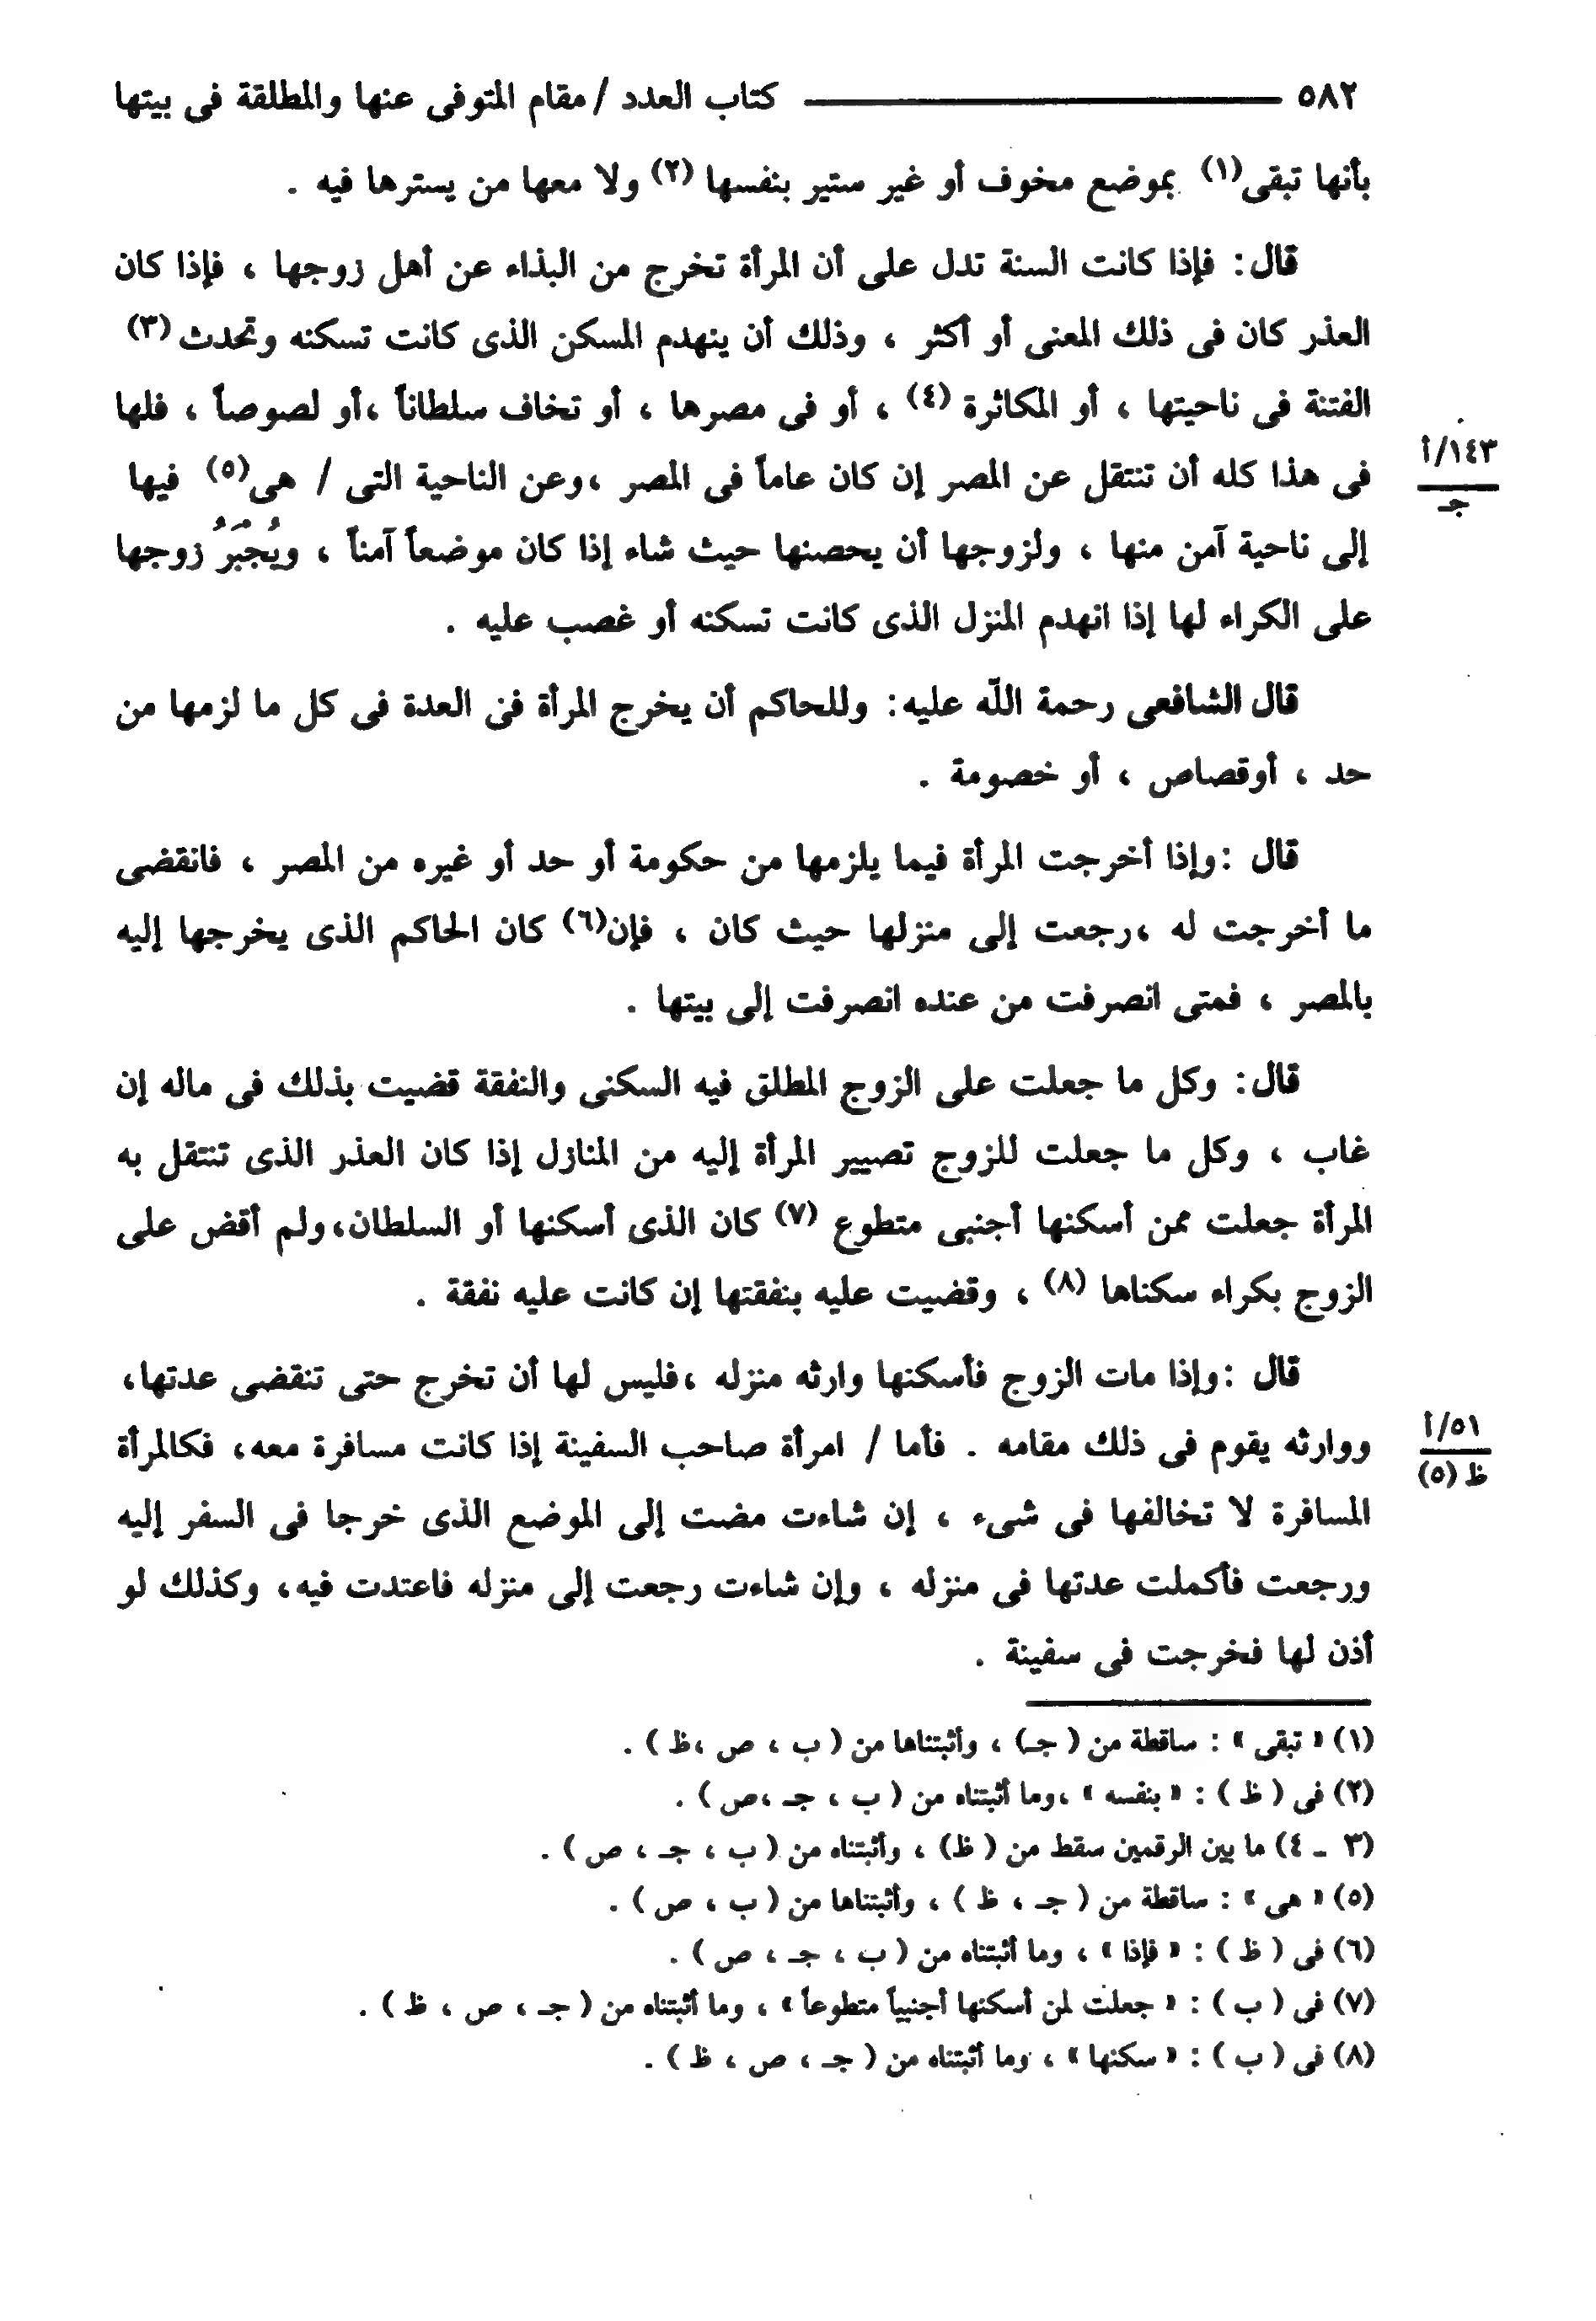 ٥٨٢ ـــــــــــ كتاب العدد / مقام المتوفى عنها والمطلقة فى بيتها
بأنها تبقى(١) بموضع مخوف أو غير ستير بنفسها (٢) ولا معها من يسترها فيه .
قال: فإذا كانت السنة تدل على أن المرأة تخرج من البذاء عن أهل زوجها ، فإذا كان
العذر كان فى ذلك المعنى أو أكثر ، وذلك أن ينهدم المسكن الذى كانت تسكنه وتحدث (٣)
الفتنة فى ناحيتها ، أو المكاثرة (٤) ، أو فى مصرها ، أو تخاف سلطاناً ،أو لصوصاً ، فلها
١٤٣/أ
جـ
فى هذا كله أن تنتقل عن المصر إن كان عاماً فى المصر ،وعن الناحية التى / هى(٥) فيها
إلى ناحية آمن منها ، ولزوجها أن يحصنها حيث شاء إذا كان موضعاً آمناً ، ويُجْبَرُ زوجها
على الكراء لها إذا انهدم المنزل الذى كانت تسكنه أو غصب عليه .
قال الشافعى رحمة الله عليه: وللحاكم أن يخرج المرأة فى العدة فى كل ما لزمها من
حد ، أوقصاص ، أو خصومة .
قال :وإذا أخرجت المرأة فيما يلزمها من حكومة أو حد أو غيره من المصر ، فانقضى
ما أخرجت له ،رجعت إلى منزلها حيث كان ، فإن(٦) كان الحاكم الذى يخرجها إليه
بالمصر ، فمتى انصرفت من عنده انصرفت إلى بيتها .
قال: وكل ما جعلت على الزوج المطلق فيه السكنى والنفقة قضيت بذلك فى ماله إن
غاب ، وكل ما جعلت للزوج تصيير المرأة إليه من المنازل إذا كان العذر الذى تنتقل به
المرأة جعلت ممن أسكنها أجنبى متطوع (٧) كان الذى أسكنها أو السلطان،ولم أقض على
الزوج بكراء سكناها (٨) ، وقضيت عليه بنفقتها إن كانت عليه نفقة .
قال :وإذا مات الزوج فأسكنها وارثه منزله ،فليس لها أن تخرج حتى تنقضى عدتها،
٥١/أ
ظ (٥)
ووارثه يقوم فى ذلك مقامه . فأما / امرأة صاحب السفينة إذا كانت مسافرة معه، فكالمرأة
المسافرة لا تخالفها فى شىء ، إن شاءت مضت إلى الموضع الذى خرجا فى السفر إليه
ورجعت فأكملت عدتها فى منزله ، وإن شاءت رجعت إلى منزله فاعتدت فيه، وكذلك لو
أذن لها فخرجت فى سفينة .
(١) « تبقى » : ساقطة من ( جـ) ، وأثبتناها من ( ب ، ص ،ظ ) .
(٢) فى ( ظ ) : « بنفسه » ،وما أثبتناه من ( ب ، جـ ،ص ) .
(٣ ـ ٤) ما بين الرقمين سقط من ( ظ) ، وأثبتناه من ( ب ، جـ ، ص ) .
(٥) « هى » : ساقطة من ( جـ ، ظ ) ، وأثبتناها من ( ب ، ص ) .
(٦) فى ( ظ ) : « فإذا » ، وما أثبتناه من ( ب ، جـ ، ص ) .
(٧) فى ( ب ) : « جعلت لمن أسكنها أجنبياً متطوعاً » ، وما أثبتناه من ( جـ ، ص ، ظ ) .
(٨) فى ( ب ) : « سكنها » ، وما أثبتناه من ( جـ ، ص ، ظ ) .